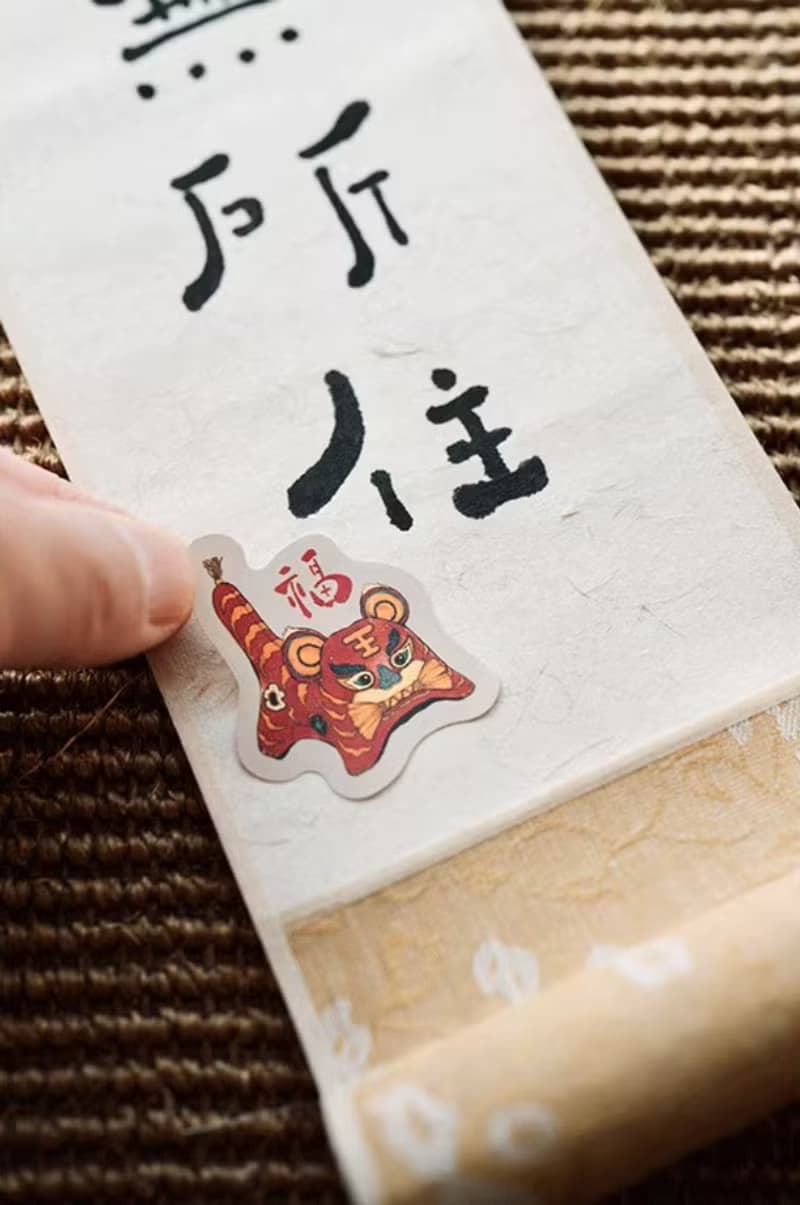 無
所
住
福
王